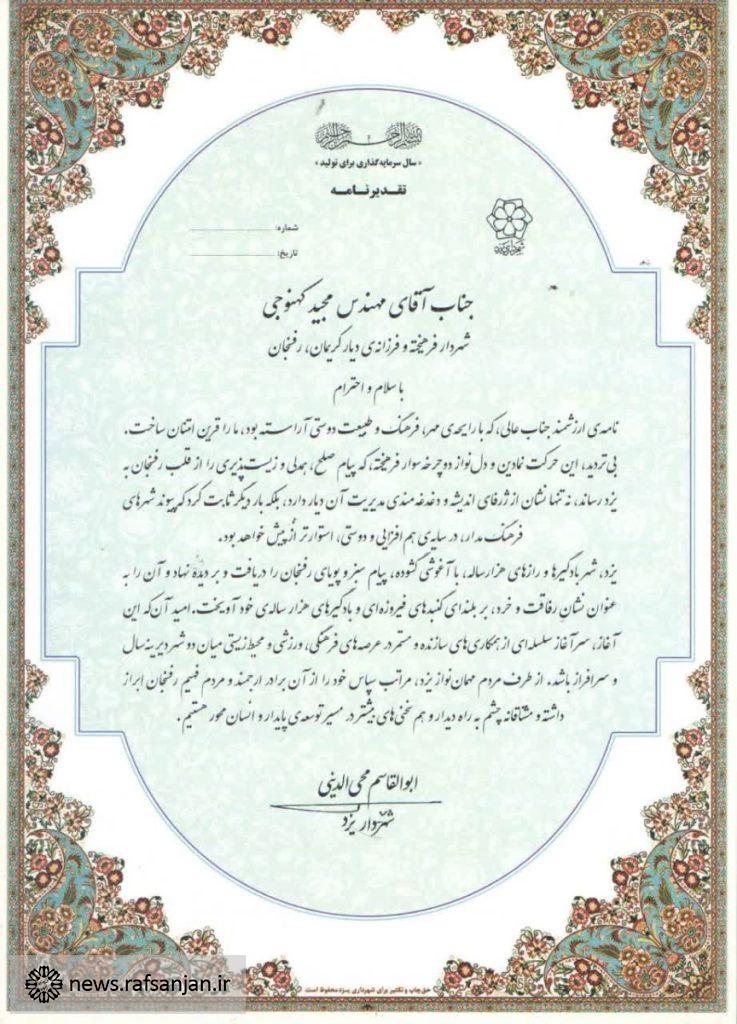 بسم الله الرحمن الرحیم
« سال سرمایه‌گذاری برای تولید »
تقدیرنامه
شماره:
تاریخ:
شهرداری یزد
جناب آقای مهندس مجید کهنوجی
شهردار فرهیخته و فرزانه‌ی دیار کریمان، رفنجان
با سلام و احترام
نامه‌ی ارزشمند جناب عالی، که با رایحه‌ی مهر، فرهنگ و طبیعت دوستی آراسته بود، ما را قرین امتنان ساخت.
بی تردید، این حرکت نمادین و دل‌نواز دوچرخه سوار فرهیخته، که پیام صلح، همدلی و زیست‌پذیری را از قلب رفنجان به
یزد رساند، نه تنها نشان از ژرفای اندیشه و دغدغه مندی مدیریت آن دیار دارد، بلکه بار دیگر ثابت کرد که پیوند شهرهای
فرهنگ مدار، در سایه‌ی هم افزایی و دوستی، استوارتر از پیش خواهد بود.
یزد، شهر بادگیرها و رازهای هزارساله، با آغوشی گشوده، پیام سبز و پویای رفنجان را دریافت و بر دیده نهاد و آن را به
عنوان نشان رفاقت و خرد، بر بلندای گنبدهای فیروزه‌ای و بادگیرهای هزار ساله‌ی خود آویخت. امید آن که این
آغاز، سرآغاز سلسله‌ای از همکاری‌های سازنده و مستمر در عرصه‌های فرهنگی، ورزشی و محیط زیستی میان دو شهر دیرینه سال
و سرافراز باشد. از طرف مردم مهمان‌نواز یزد، مراتب سپاس خود را از آن برادر ارجمند و مردم فهیم رفنجان ابراز
داشته و مشتاقانه چشم به راه دیدار و هم سخنی‌های بیشتر در مسیر توسعه‌ی پایدار و انسان محور هستیم.
ابوالقاسم محی‌الدینی
شهردار یزد
حق چاپ و تکثیر برای شهرداری یزد محفوظ است.
news.rafsanjan.ir